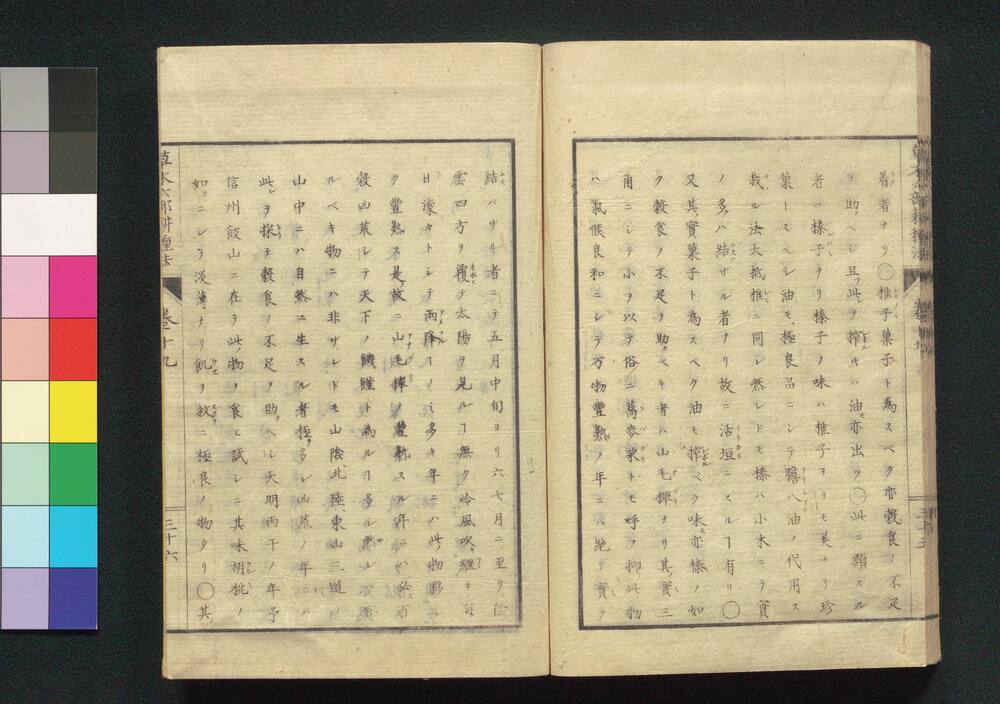 着者ナリ〇椎子菓子ト為スベク亦穀食ノ不足
ヲ助ベシ且此ヲ搾キハ油亦出ツ〇此ニ類スル
者ハ榛子ナリ榛子ノ味ハ椎子ヨリモ美ナリ珍
菓トスベシ油モ極良品ニシテ膽八油ノ代用ス
栽ル法大抵椎ニ同シ然レドモ榛ハ小木ニテ實
ノ多ハ結ザル者ナリ故ニ活垣ニスルヿ有リ〇
又其實菓子ト為スベク油モ搾ベク味亦榛ノ如
ク穀食ノ不足ヲ助ベキ者ハ山毛欅ナリ其實三
角ニシテ小ヲ以テ俗ニ蕎麥栗トモ呼フ抑此物
ハ氣候良和ニシテ万物豐熟ノ年ニハ絶テ實ヲ
結バザル者ニテ五月中旬ヨリ六七月ニ至リ陰
雲四方ヲ覆テ太陽ヲ見ルヿ無ク冷風吹繼キ每
日濛々トシテ雨降ヿノミ多キ年ニハ此物夥
ク豐熟ス是故ニ山毛欅ノ豐熟スル年ニハ必
穀凶荒シテ天下ノ饑饉ト為ルヿ多シ然レ
ルベキ物ニハ非ザレドモ山陰北陸東山三道ノ
山中ニハ自然ニ生スル者極多シ凶荒ノ年ニハ
此レヲ採テ穀食ノ不足ヲ助ベシ天明丙午ノ年予
信州飯山ニ在テ此物ヲ食ヒ試シニ其味胡桃ノ
如クニシテ淡薄ナリ飢ヲ救ニ極良ノ物タリ〇其
草木六部耕種法
卷十九
三十六